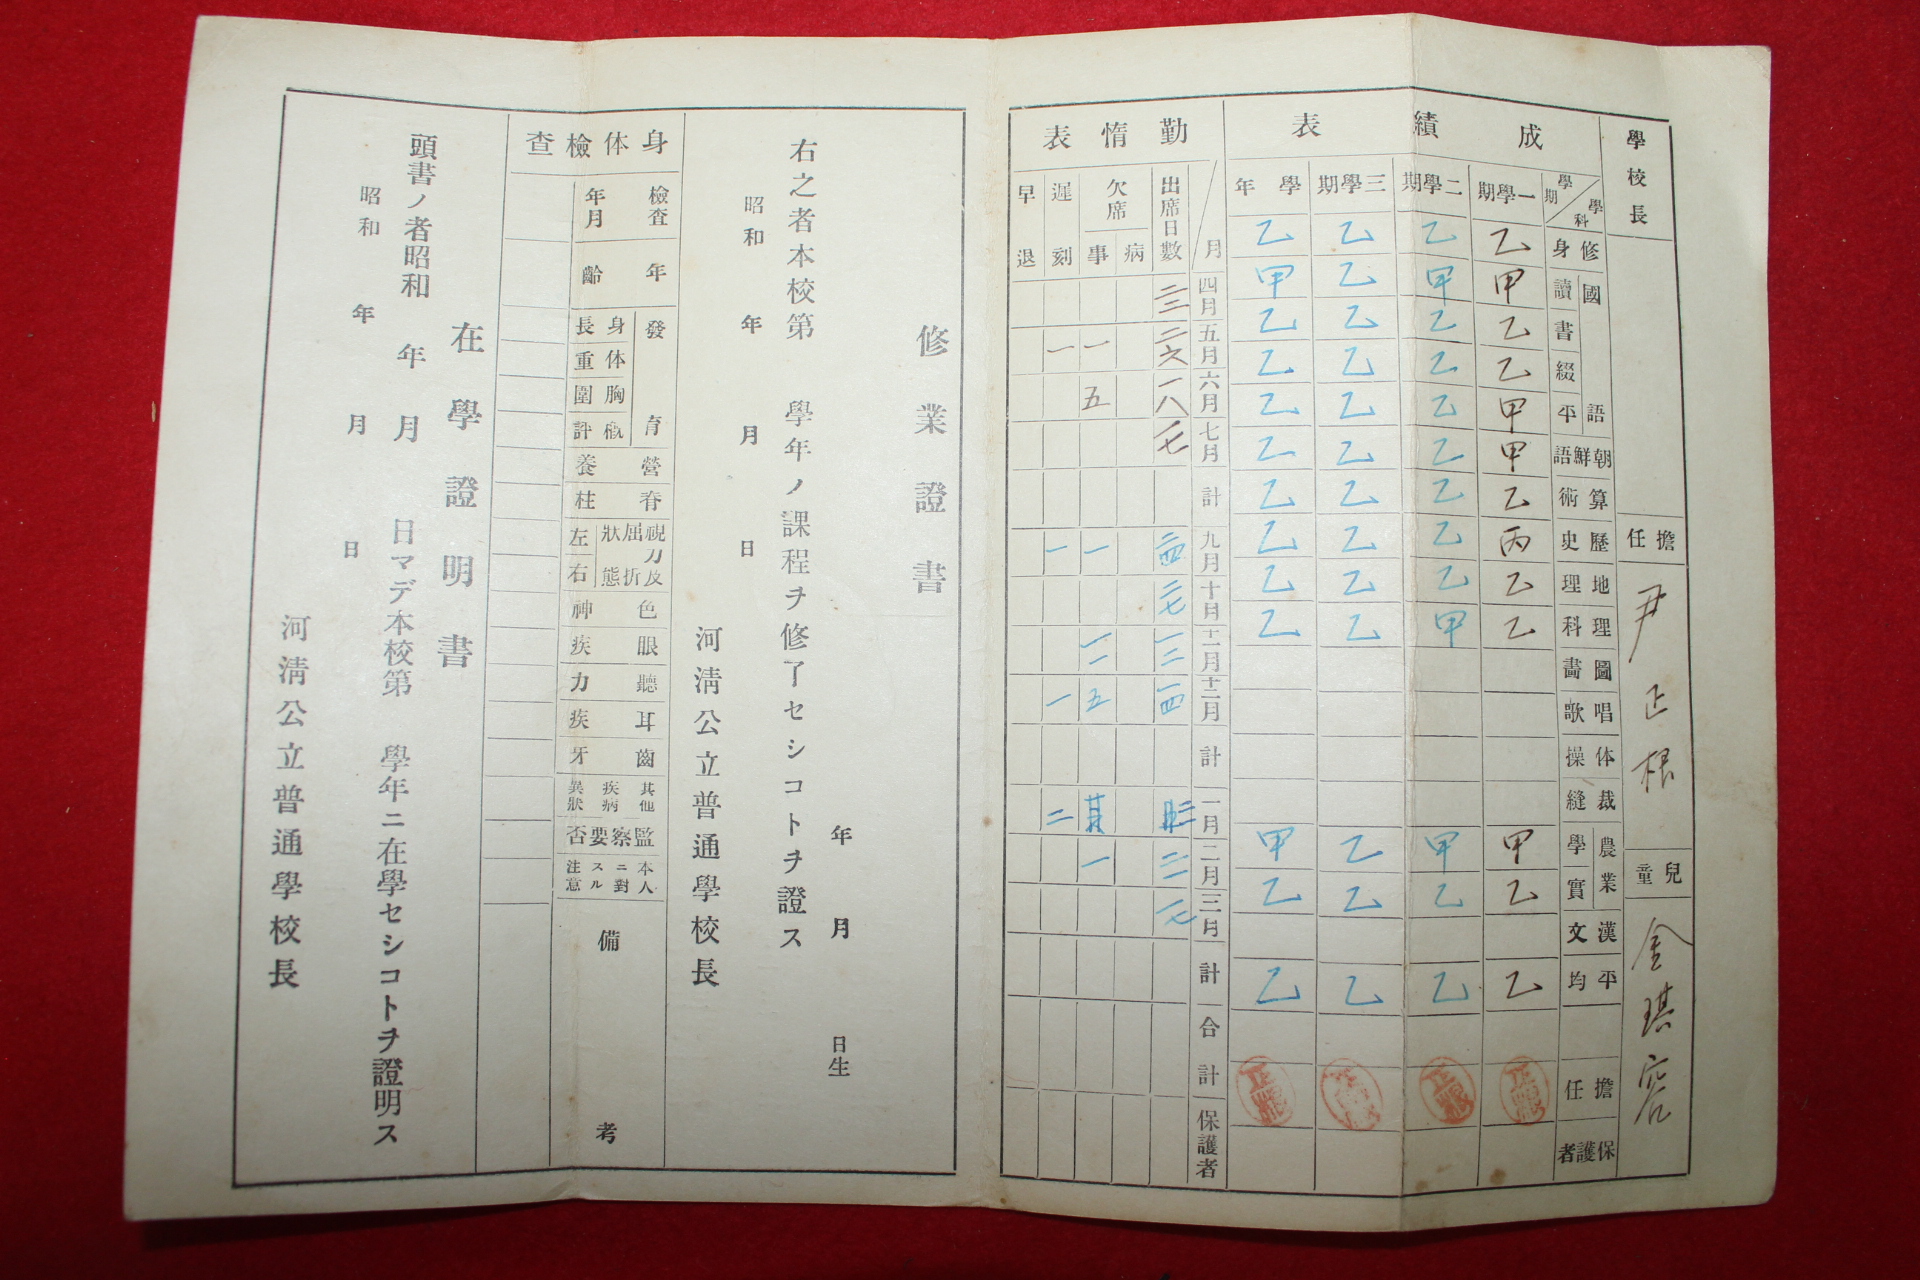 學校長
擔任
尹正根
兒童
金琪容
成績表
學期 學科
一學期
二學期
三學期
學年
修身 乙 乙 乙 乙
國語
讀 甲 甲 乙 甲
書 乙 乙 乙 乙
綴 乙 乙 乙 乙
平 甲 乙 乙 乙
朝鮮語 甲 乙 乙 乙
算術 乙 乙 乙 乙
歷史 丙 乙 乙 乙
地理 乙 乙 乙 乙
理科 乙 甲 乙 乙
圖畵
唱歌
体操
裁縫
農業
學 甲 甲 乙 甲
實 乙 乙 乙 乙
漢文
平均 乙 乙 乙 乙
擔任 正根 正根 正根 正根
保護者
勤惰表
月
出席日數
欠席
病
事
遲刻
早退
四月 二三
五月 二六 一 一
六月 一八 五
七月 一七
計
九月 二四 一 一
十月 二七
十一月 一三 一二
十二月 一四 五 一
計
一月 二
二月 二二 一
三月 一七
計
合計
保護者
修業證書
年 月 日生
右之者本校第 學年ノ課程ヲ修了セシコトヲ證ス
昭和 年 月 日
河淸公立普通學校長
身体檢査
檢査年月
年齡
發育
身長
体重
胸圍
概評
營養
脊柱
視力及屈折狀態
左
右
色神
眼疾
聽力
耳疾
齒牙
其他疾病異狀
監察要否
本人ニ對スル注意
備考
在學證明書
頭書ノ者昭和 年 月 日マデ本校第 學年ニ在學セシコトヲ證明ス
昭和 年 月 日
河淸公立普通學校長